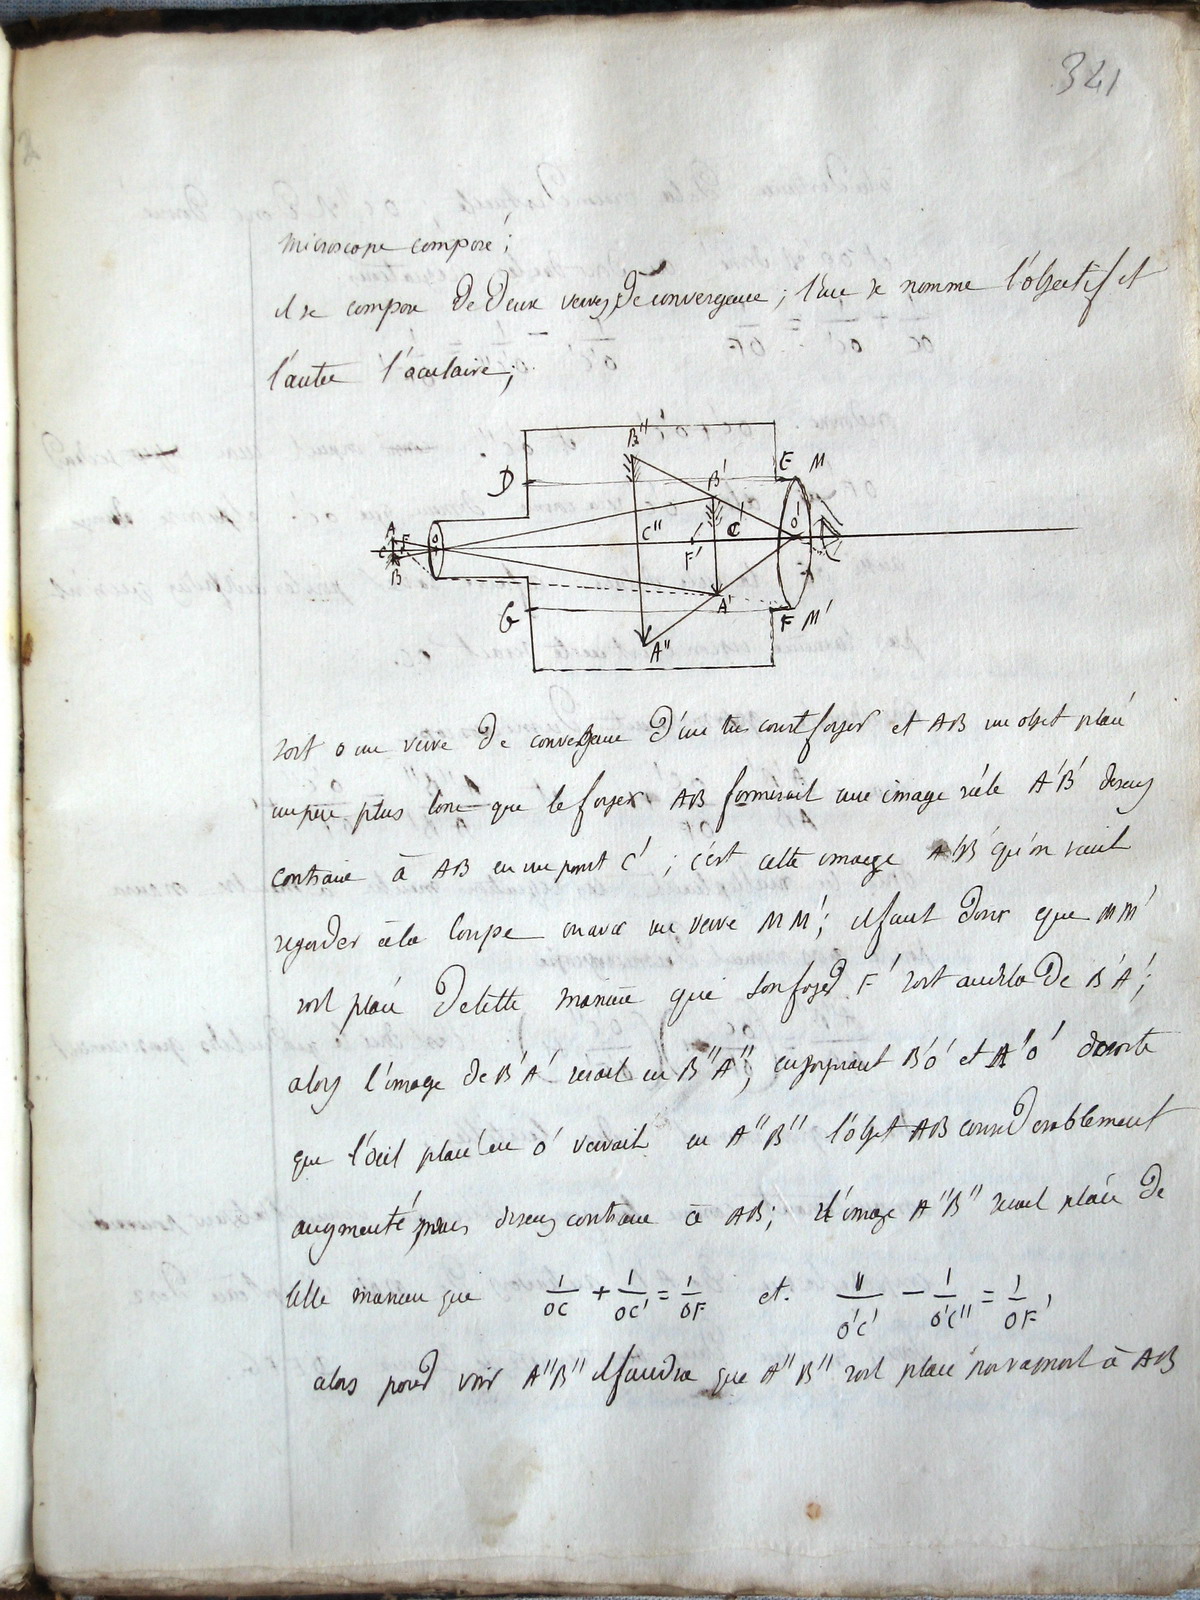 341
microscope composé;
il se compose de deux verres de convergence; l'une se nomme l'objectif et
l'autre l'oculaire;
B''
D
B'
E M
A
F
O
C
C''
F'
C'
O'
B
G
A'
F M'
A''
soit o un verre de convergence d'une très court foyer et AB un objet placé
un peu plus loin que le foyer. AB formerait une image réele A'B' de sens
contraire à AB en un point C'; c'est cette image A'B' qu'on veut
regarder à la loupe ou avec un verre MM'; il faut donc que MM'
soit placé de cette manière que son foyer F' soit au delà de B'A';
alors l'image de B'A' serait en B''A'', en joignant B'O' et A'O' de sorte
que l'oeil placé en o' verrait en A''B'' l'objet AB considerablement
augmenté, mais de sens contraire à AB; l'image A''B'' serait placée de
telle manière que 1/OC + 1/OC' = 1/OF et. 1/O'C' − 1/O'C'' = 1/OF'
alors pour voir A''B'' il faudra que A''B'' soit placé par rapport à AB